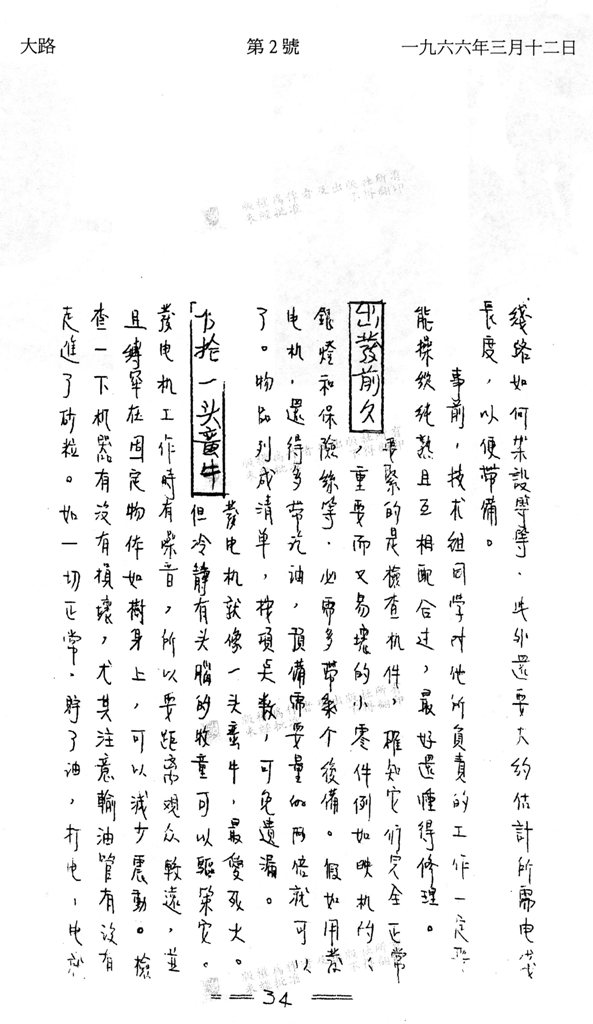 大路
第2號
一九六六年三月十二日
綫路如何架設等等．此外還要大約估計所需电线
長度，以便帶備。
事前，技术組同学对他所負責的工作一定要
能操縱純熟且互相配合过，最好還懂得修理。
出發前夕
要緊的是檢查机件，確知它们完全正常
，重要而又易壞的小零件例如映机的
銀燈和保險絲等．必需多帶幾个後備。假如用發
电机，還得多帶汽油，預備需要量的两倍就可以
了。物品列成清单，按項点数，可免遺漏。
一头蛮牛
發电机就像一头蛮牛，最愛死火。
但冷靜有头腦的牧童可以驅策它。
發电机工作時有噪音，所以要距离观众較遠，並
且縛牢在固定物体如樹身上，可以减少震動。檢
查一下机器有沒有損壞，尤其注意輸油管有沒有
走進了砂粒。如一切正常．貯了油，打电，电
34
版權為作者及出版社所有
未經批准 不得翻印